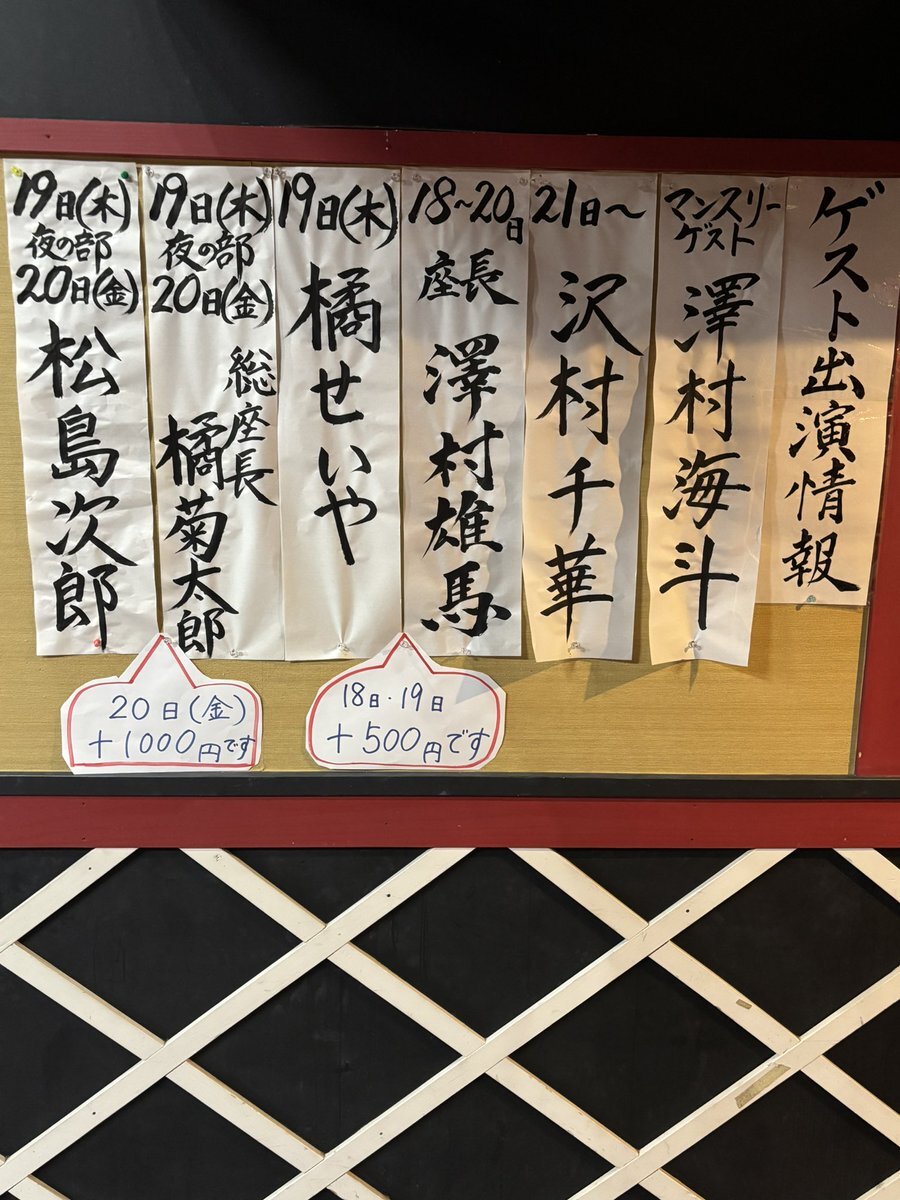 ゲスト出演情報
マンスリー
ゲスト
澤村海斗
21日〜
沢村千華
18〜20日
座長
澤村雄馬
19日(木)
橘せいや
19日(木)
夜の部
20日(金)
総座長
橘菊太郎
19日(木)
夜の部
20日(金)
松島次郎
18日・19日
+500円です
20日(金)
+1000円です